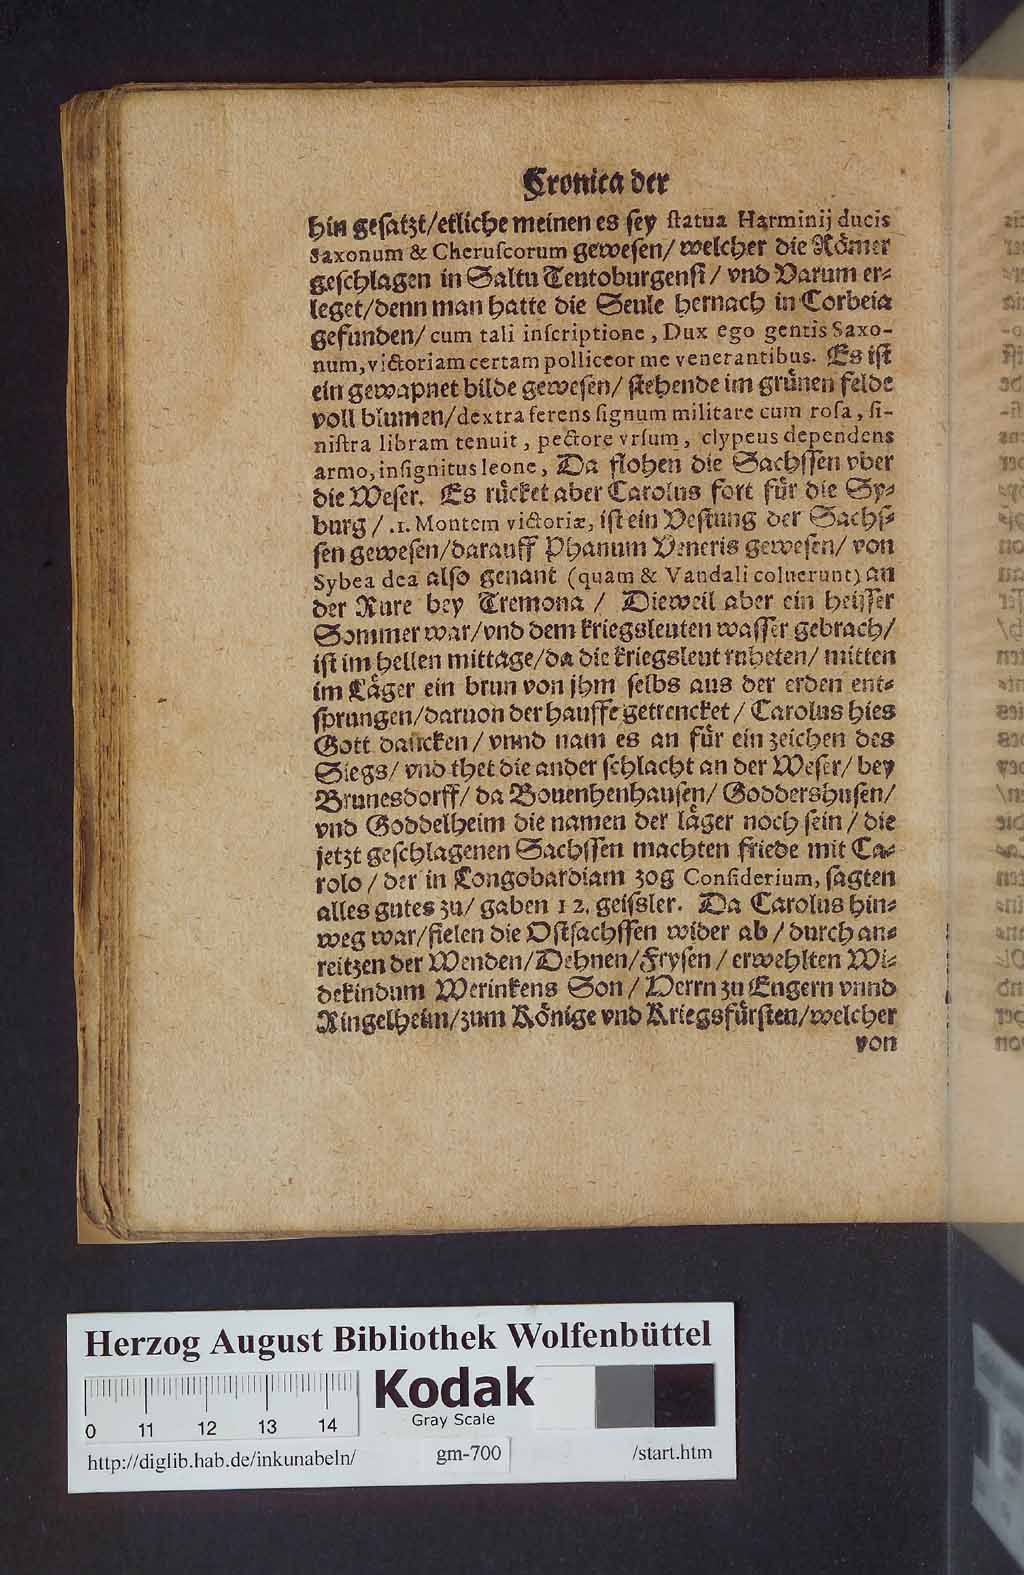 Cronica der
hin gesatzt/etliche meinen es sey ſtatua Harminij ducis
Saxonum & Cheruſcorum gewesen/ welcher die Römer
geschlagen in Saltu Teutoburgensi/ vnd Varum er⸗
leget/denn man hatte die Seule hernach in Corbeia
gefunden/ cum tali inſcriptione, Dux ego gentis Saxo-
num, victoriam certam polliceor me venerantibus. Es ist
ein gewapnet bilde gewesen/ stehende im grünen felde
voll blumen/dextra ferens ſignum militare cum roſa, ſi-
niſtra libram tenuit, pectore vrſum, clypeus dependens
armo, inſignitus leone, Da flohen die Sachssen vber
die Weser. Es rücket aber Carolus fort für die Sy⸗
burg/ .1. Montem victoriæ, ist ein Vestung der Sachs⸗
sen gewesen/darauff Phanum Veneris gewesen/ von
Sybea dea also genant (quam & Vandali coluerunt) an
der Rure bey Tremona/ Dieweil aber ein heisser
Sommer war/vnd dem kriegsleuten wasser gebrach/
ist im hellen mittage/da die kriegsleut ruheten/ mitten
im Läger ein brun von jhm selbs aus der erden ent⸗
sprungen/daruon der hauffe getrencket/ Carolus hies
Gott dancken/ vnnd nam es an für ein zeichen des
Siegs/ vnd thet die ander schlacht an der Weser/ bey
Brunesdorff/ da Bouenhenhausen/ Goddershusen/
vnd Goddelheim die namen der läger noch sein/ die
jetzt geschlagenen Sachssen machten friede mit Ca⸗
rolo/ der in Longobardiam zog Conſiderium, sagten
alles gutes zu/ gaben 12. geissler. Da Carolus hin⸗
weg war/fielen die Ostsachssen wider ab/ durch an⸗
reitzen der Wenden/Dehnen/Frysen/ erwehlten Wi⸗
dekindum Werinkens Son/ Herrn zu Engern vnnd
Ringelheim/zum Könige vnd Kriegsfürsten/welcher
von
Herzog August Bibliothek Wolfenbüttel
Kodak
Gray Scale
0 11 12 13 14
http://diglib.hab.de/inkunabeln/ gm-700 /start.htm